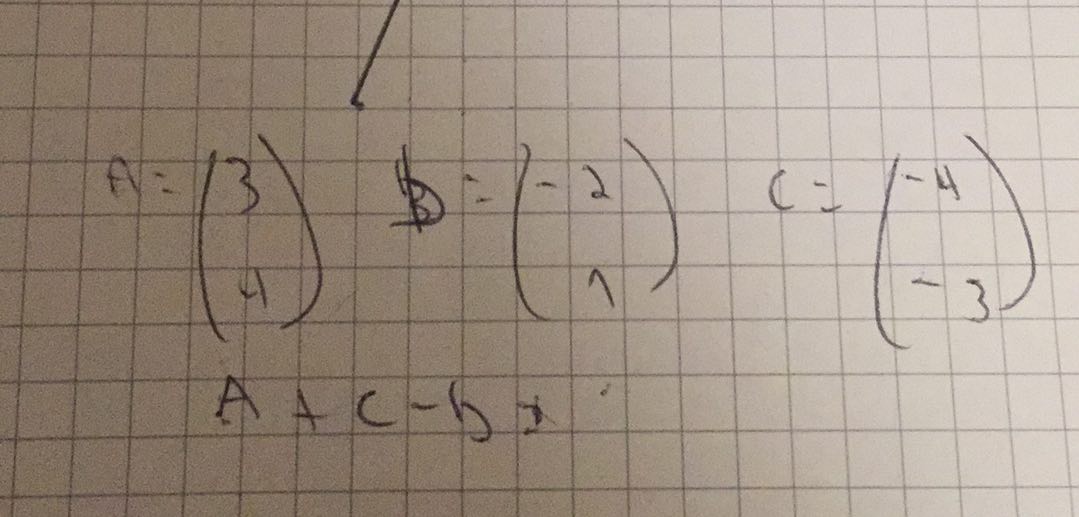 A = (3 4) B = (-2 1) C = (-4 -3)
A + C - b